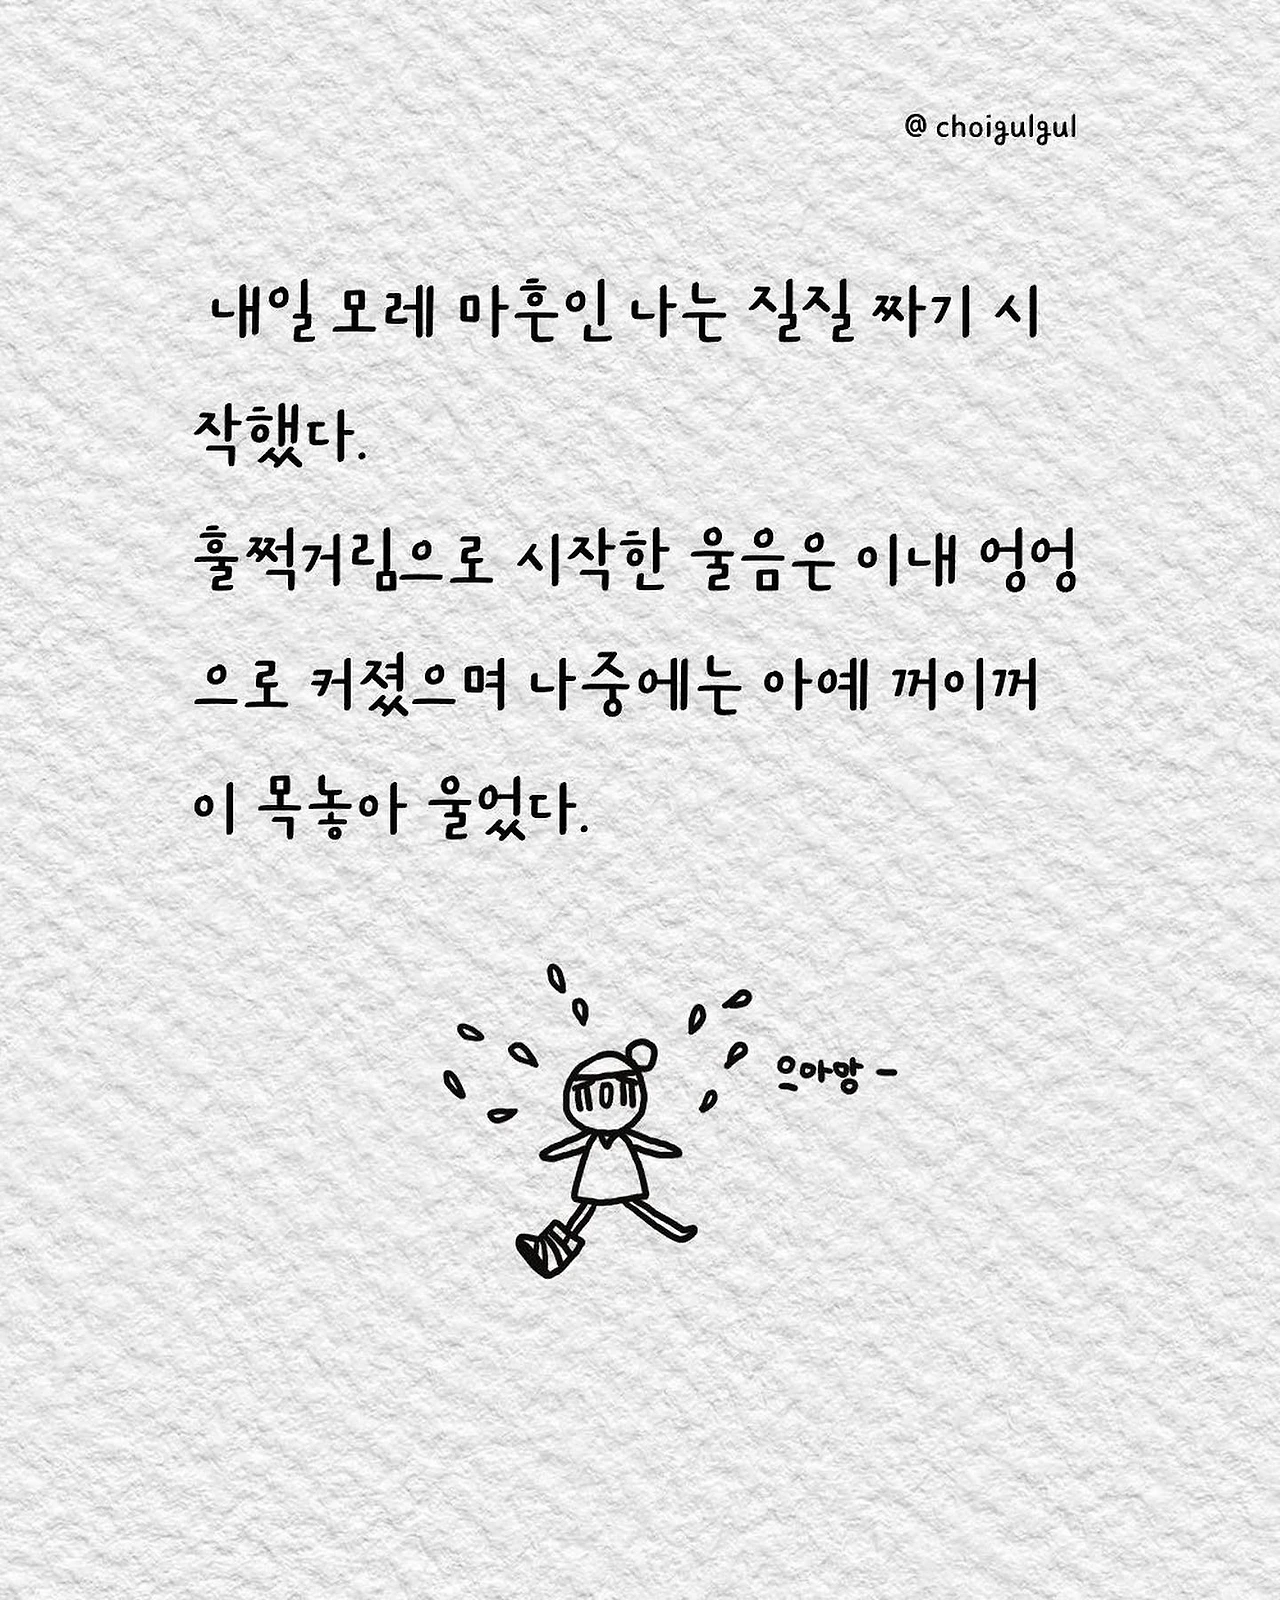 @ choigulgul
내일 모레 마흔인 나는 질질 짜기 시
작했다.
훌쩍거림으로 시작한 울음은 이내 엉엉
으로 커졌으며 나중에는 아예 꺼이꺼
이 목놓아 울었다.
으아앙 -